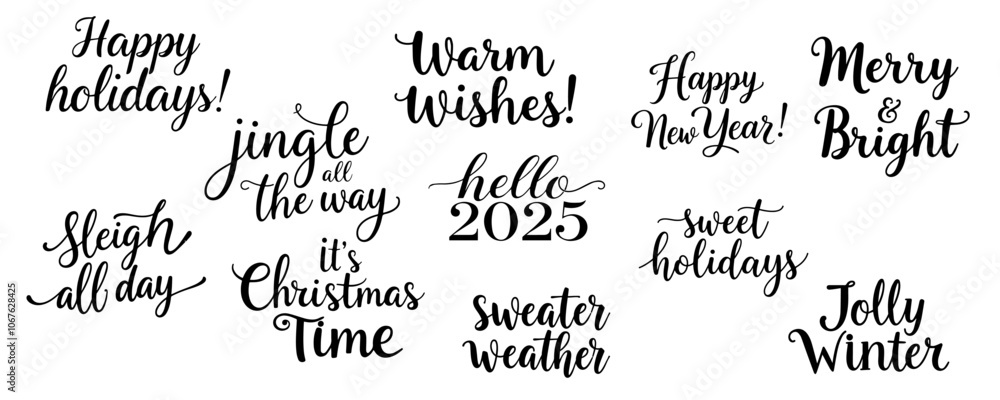 Happy
holidays!
jingle
all
the way
Sleigh
all day
it's
Christmas
Time
Warm
Wishes!
hello
2025
sweater
weather
Happy
New Year!
sweet
holidays
Merry
&
Bright
Jolly
Winter
Adobe Stock | #1067628425